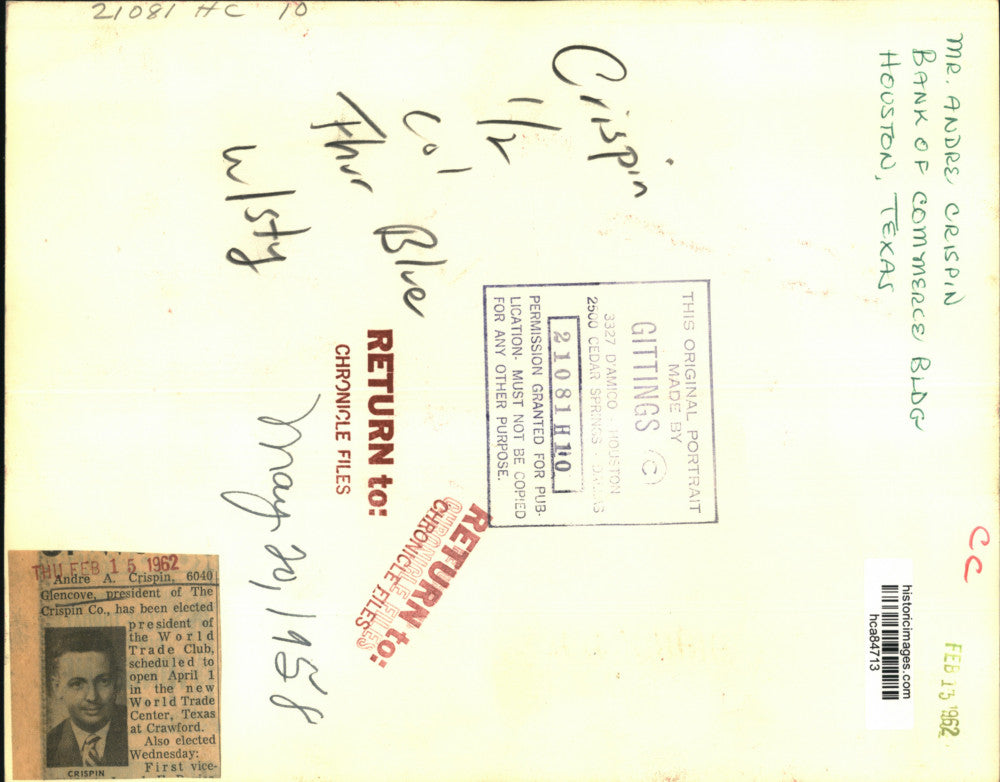 21081 HC 10
MR. ANDRE CRISPIN
BANK OF COMMERCE BLDG
HOUSTON, TEXAS
Crispin
1/2
Col Blue
Thur
w/sty
THIS ORIGINAL PORTRAIT
MADE BY
GITTINGS (C)
3327 D'AMICO · HOUSTON
2500 CEDAR SPRINGS · DALLAS
21081H10
PERMISSION GRANTED FOR PUB-
LICATION- MUST NOT BE COPIED
FOR ANY OTHER PURPOSE.
RETURN to:
CHRONICLE FILES
RETURN to:
CHRONICLE FILES
CHRONICLE FILES
May 20, 1958
CC
FEB 15 1962
historicimages.com
hca84713
THU FEB 15 1962
Andre A. Crispin, 6040
Glencove, president of The
Crispin Co., has been elected
president of
the World
Trade Club,
scheduled to
open April 1
in the new
World Trade
Center, Texas
at Crawford.
Also elected
Wednesday:
First vice-
CRISPIN